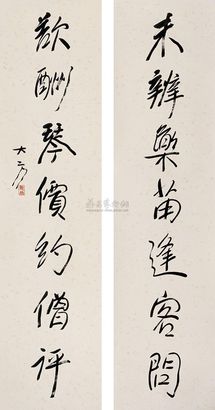 未辨藥苗逢客問
欲酬琴價約僧評
大方